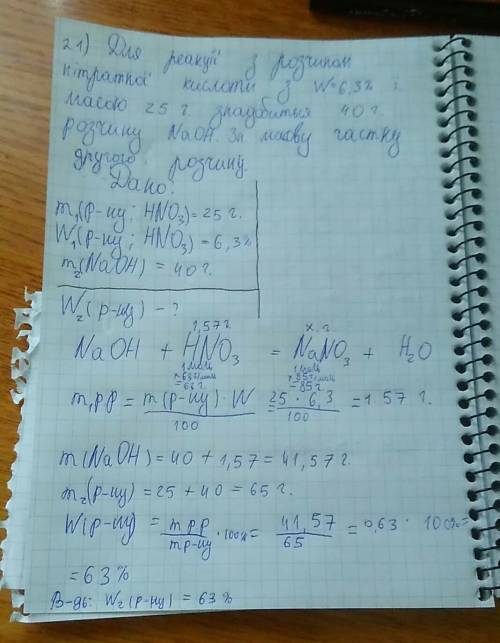 21) Для реакції з розчином
нітратної кислоти з W=6,3% і
масою 25 г. знадобиться 40 г.
розчину NaOH. Зн масову частку
другого розчину.
Дано:
m₁(р-ну; HNO₃)=25 г.
W₁(р-ну; HNO₃)=6,3%
m₂(NaOH) = 40 г.
W₂(р-ну) - ?
1,57 г x. г.
NaOH + HNO₃ = NaNO₃ + H₂O
1 моль 1 моль
×63 г/моль ×85 г/моль
=63 г. =85 г
m₁рр = m(р-ну)·W / 100 = 25·6,3 / 100 = 1.57 г.
m(NaOH)=40+1,57=41,57 г.
m₂(р-ну)=25+40=65 г.
W(р-ну) = mрр / mр-ну · 100%= 41,57 / 65 =0,63· 100%=
=63%
В-дь: W₂(р-ну) = 63%